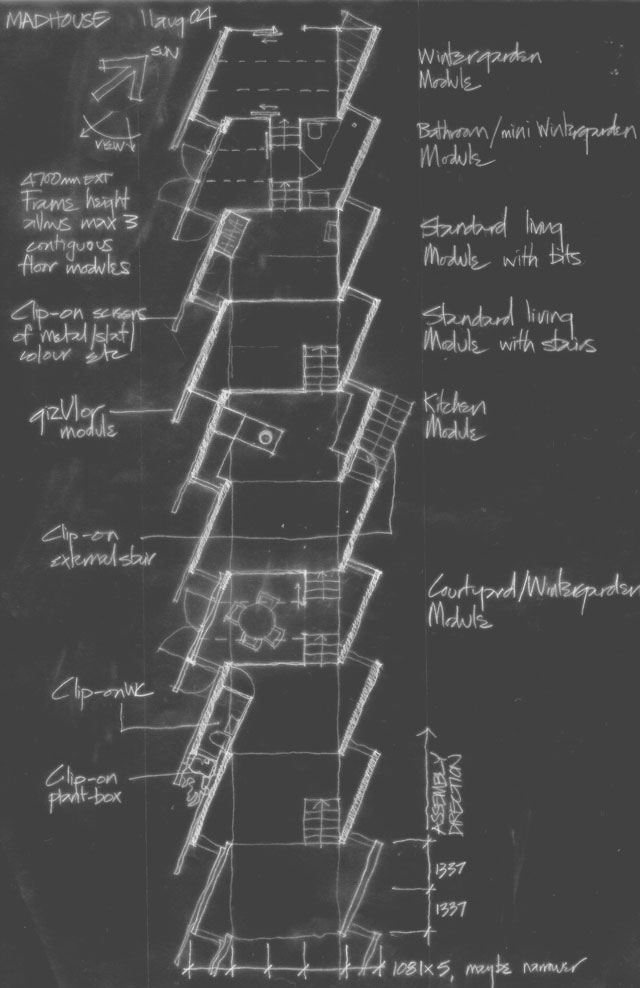 MADHOUSE 11 aug 04
SUN
VIEW
4700mm EXT
Frame height
allows max 3
contiguous
floor modules
Clip-on screens
of metal/slat/
colour etc
module
Clip-on
external stair
Clip-on WC
Clip-on
plant-box
Wintergarden
Module
Bathroom/mini Wintergarden
Module
Standard living
Module with bits
Standard living
Module with stairs
Kitchen
Module
Courtyard/Wintergarden
Module
ASSEMBLY
DIRECTION
1337
1337
1081×5, maybe narrower